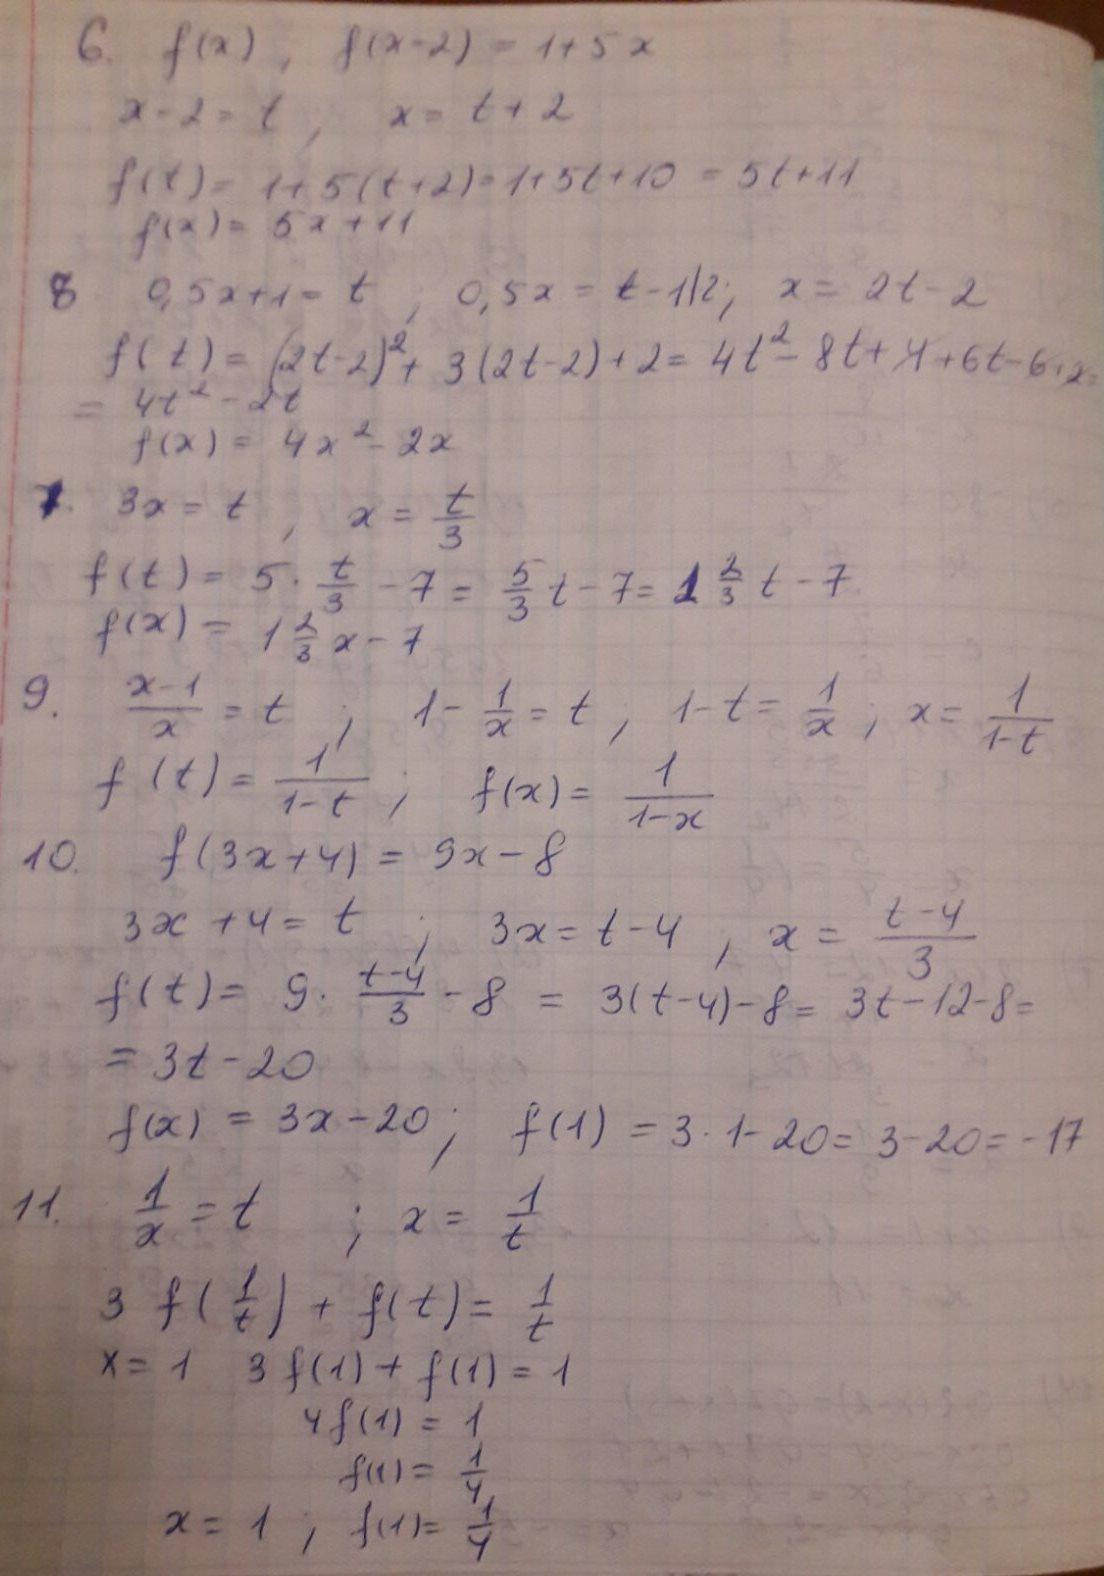 6. f(x), f(x-2) = 1+5x
x-2 = t, x = t+2
f(t) = 1+5(t+2) = 1+5t+10 = 5t+11
f(x) = 5x+11
8 0,5x+1 = t; 0,5x = t-1|2; x = 2t-2
f(t) = (2t-2)²+ 3(2t-2)+2 = 4t²-8t+4+6t-6+2=
= 4t²-2t
f(x) = 4x²-2x
7. 3x = t, x = t/3
f(t) = 5·t/3 -7 = 5/3 t-7= 1 2/3 t-7
f(x) = 1 2/3 x-7
9. (x-1)/x = t; 1- 1/x = t; 1-t = 1/x; x = 1/(1-t)
f(t) = 1/(1-t); f(x) = 1/(1-x)
10. f(3x+4) = 9x-8
3x+4 = t; 3x = t-4, x = (t-4)/3
f(t) = 9·(t-4)/3 -8 = 3(t-4)-8 = 3t-12-8=
= 3t-20
f(x) = 3x-20; f(1) = 3·1-20 = 3-20 = -17
11. 1/x = t; x = 1/t
3 f(1/t) + f(t) = 1/t
x = 1 3f(1)+f(1) = 1
4f(1) = 1
f(1) = 1/4
x = 1; f(1) = 1/4